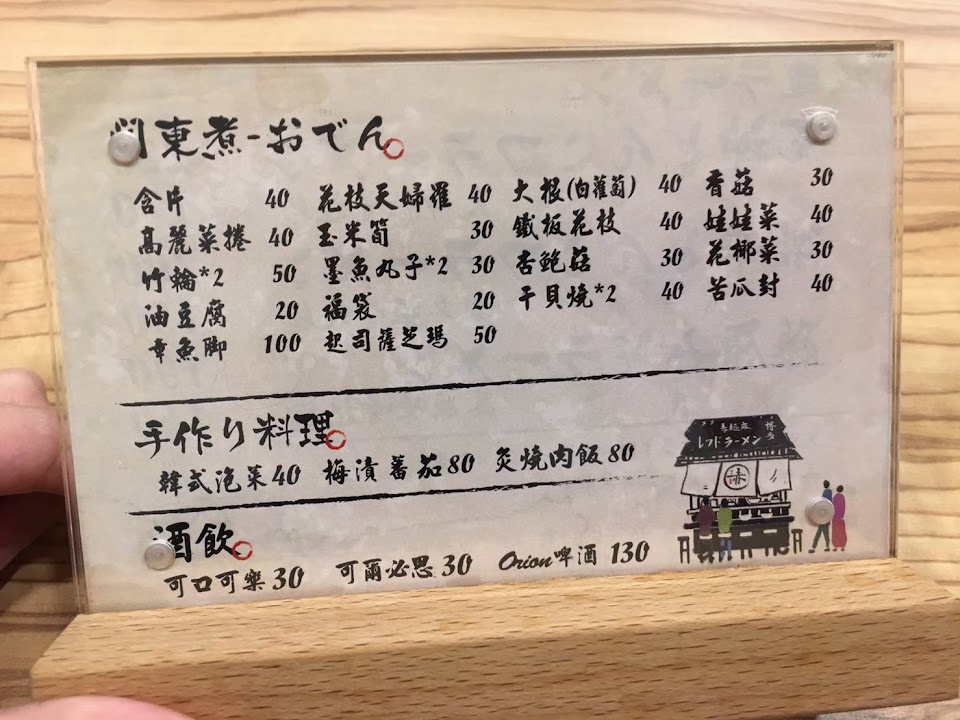 関東煮-おでん
含片 40 花枝天婦羅 40 大根(白蘿蔔) 40 香菇 30
高麗菜捲 40 玉米筍 30 鐵板花枝 40 娃娃菜 40
竹輪*2 50 墨魚丸子*2 30 杏鮑菇 30 花椰菜 30
油豆腐 20 福袋 20 干貝燒*2 40 苦瓜封 40
章魚脚 100 起司薩芝瑪 50
手作り料理
韓式泡菜40 梅漬蕃茄80 炙燒肉飯80
酒飲
可口可樂30 可爾必思30 Orion啤酒 130
レッドラーメン
赤